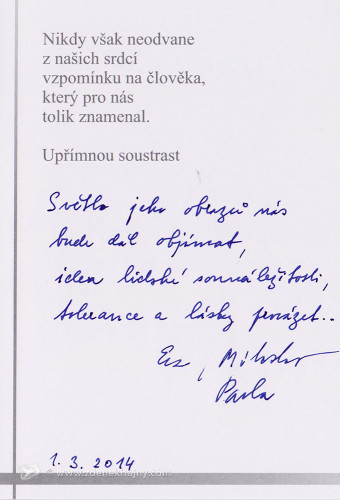 Nikdy však neodvane
z našich srdcí
vzpomínku na člověka,
který pro nás
tolik znamenal.
Upřímnou soustrast
Světlo jeho obrazů nás
bude dál objímat,
idea lidské sounáležitosti,
tolerance a lásky provázet..
Pavla
1. 3. 2014
www.zdenekhajny.com